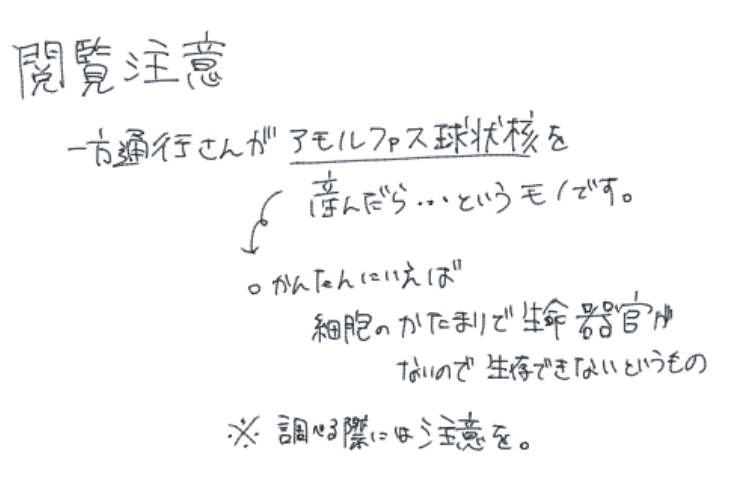 閲覧注意
一方通行さんがアモルファス球状核を
産んだら…というモノです。
○かんたんにいえば
細胞のかたまりで生命器官が
ないので生存できないというもの
※ 調べる際には注意を。